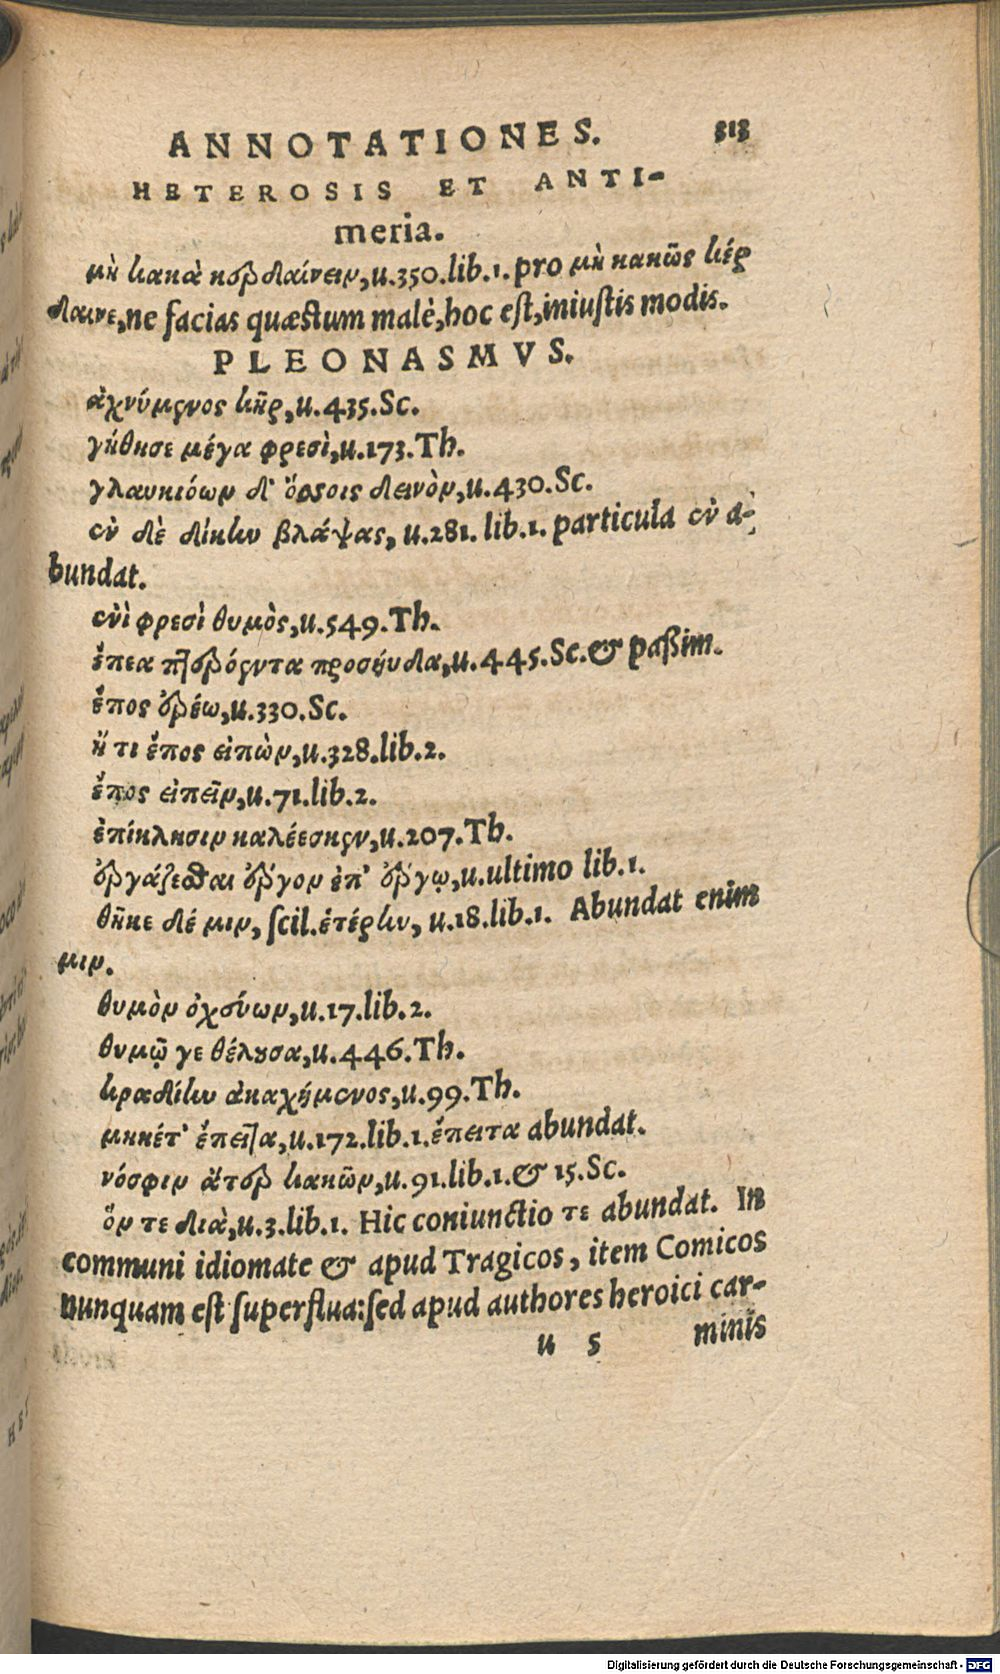 ANNOTATIONES. 313
HETEROSIS ET ANTI-
meria.
μὴ κακὰ κερδαίνειν, u.350.lib.1. pro μὴ κακῶς κέρ
δαινε, ne facias quæstum malè, hoc est, iniustis modis.
PLEONASMVS.
ἀχνύμενος κῆρ, u.435.Sc.
γήθησε μέγα φρεσὶ, u.173.Th.
γλαυκιόων δ' ὄσσοις δεινὸν, u.430.Sc.
ἐν δὲ δίκην βλάψας, u.281. lib.1. particula ἐν a-
bundat.
ἐνὶ φρεσὶ θυμὸς, u.549.Th.
ἔπεα πτερόεντα προσηύδα, u.445.Sc. & paßim.
ἔπος ἐρέω, u.330.Sc.
ἤ τι ἔπος εἰπὼν, u.328.lib.2.
ἔπος εἰπεῖν, u.71.lib.2.
ἐπίκλησιν καλέεσκεν, u.207.Th.
ἐργάζεσθαι ἔργον ἐπ' ἔργῳ, u.ultimo lib.1.
θῆκε δέ μιν, scil. ἑτέρην, u.18.lib.1. Abundat enim
μιν.
θυμὸν ὀχεύων, u.17.lib.2.
θυμῷ γε θέλουσα, u.446.Th.
κραδίην ἀκαχήμενος, u.99.Th.
μηκέτ' ἔπειτα, u.172.lib.1. ἔπειτα abundat.
νόσφιν ἄτερ κακῶν, u.91.lib.1. & 15.Sc.
ὅν τε διὰ, u.3.lib.1. Hic coniunctio τε abundat. In
communi idiomate & apud Tragicos, item Comicos
nunquam est superflua: sed apud authores heroici car-
u 5 minis
Digitalisierung gefördert durch die Deutsche Forschungsgemeinschaft - DFG